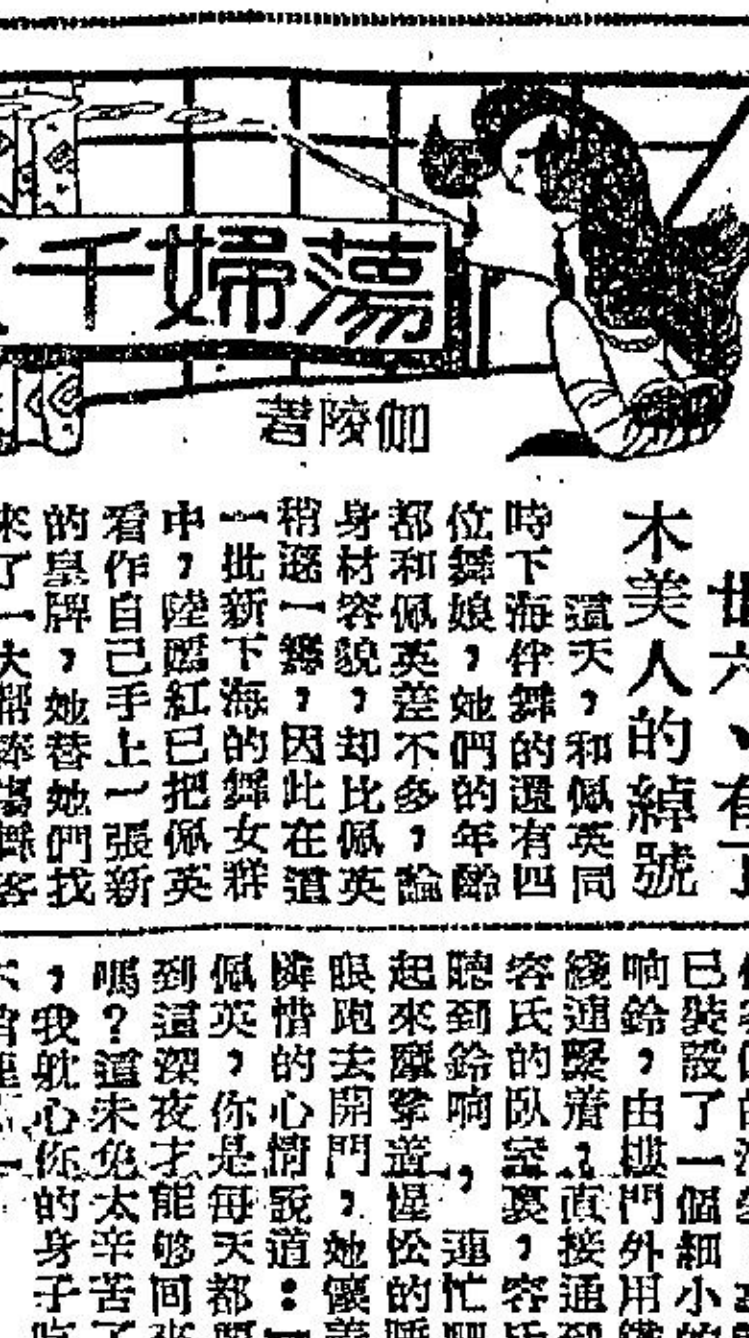 蕩婦千
伽陵著
廿六、有了
木美人的綽號
這天,和佩英同
時下海伴舞的還有四
位舞娘,她們的年齡
都和佩英差不多,論
身材容貌,却比佩英
稍遜一籌,因此在這
一批新下海的舞女群
中,陸露紅已把佩英
看作自己手上一張新
的皇牌,她替她們找
來了一大幫捧場舞客
已裝設了一個細小的
响鈴,由樓門外用
綫連繫着,直接通到
容氏的臥室裏,容氏
聽到鈴响,連忙
起來摩挲着惺忪的睡
眼跑去開門,她懷着
憐惜的心情說道:「
佩英,你是每天都
到這深夜才能够回來
嗎?這未免太辛苦了
,我躭心你的身子